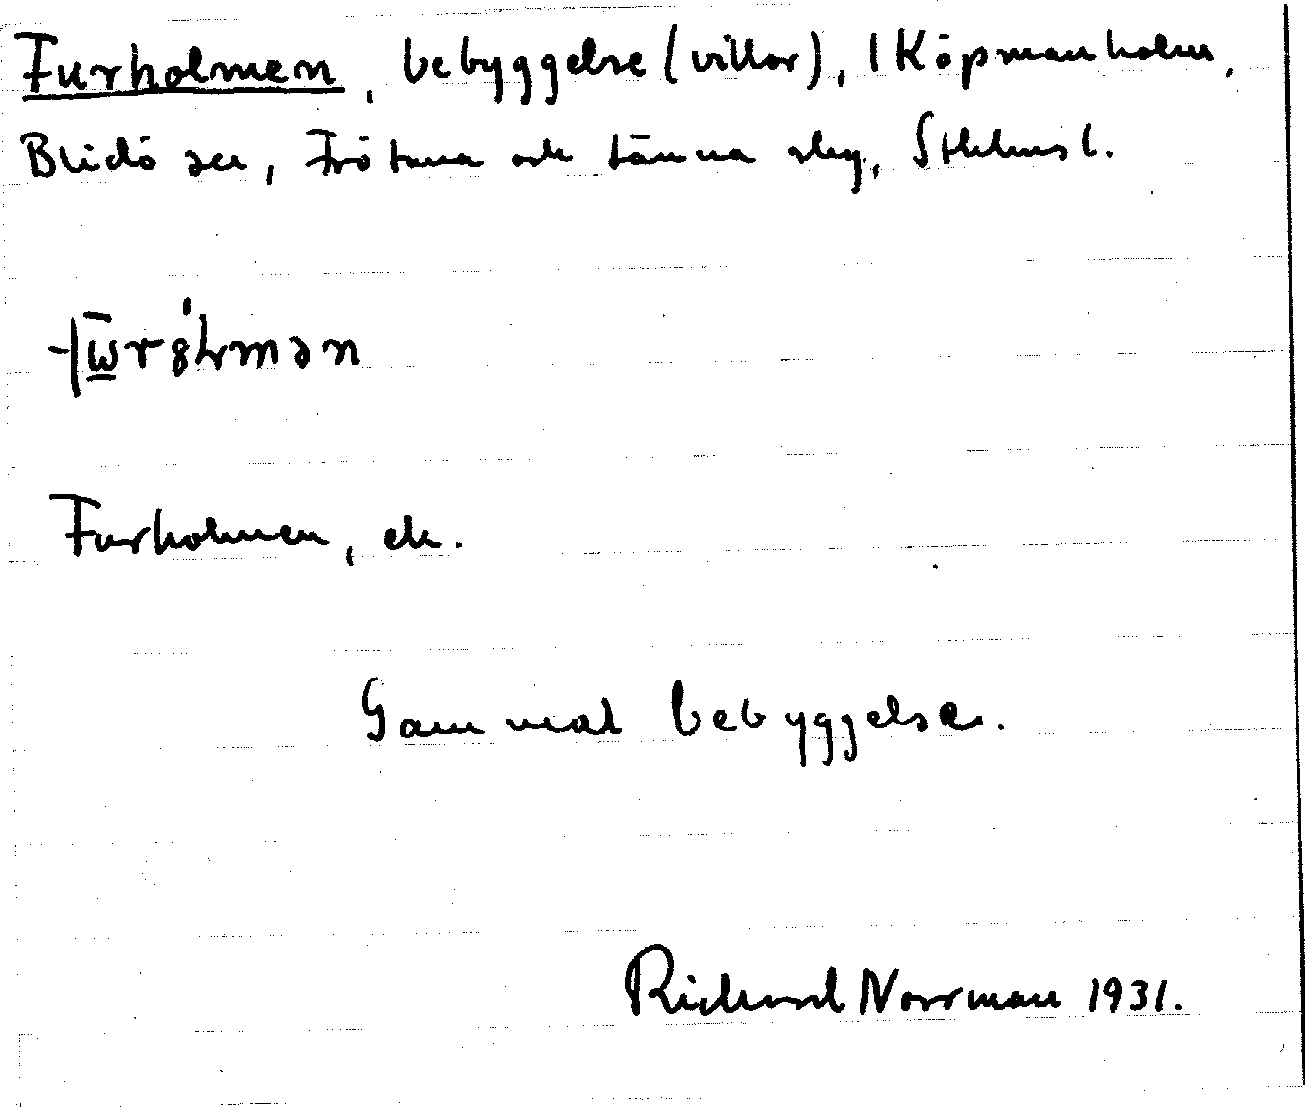 Furholmen, bebyggelse (villor), 1 Köpmanholm,
Blidö sn, Frötuna och Länna skg, Sthlms l.
Furholmen, ek.
Gammal bebyggelse.
Rickard Norrman 1931.